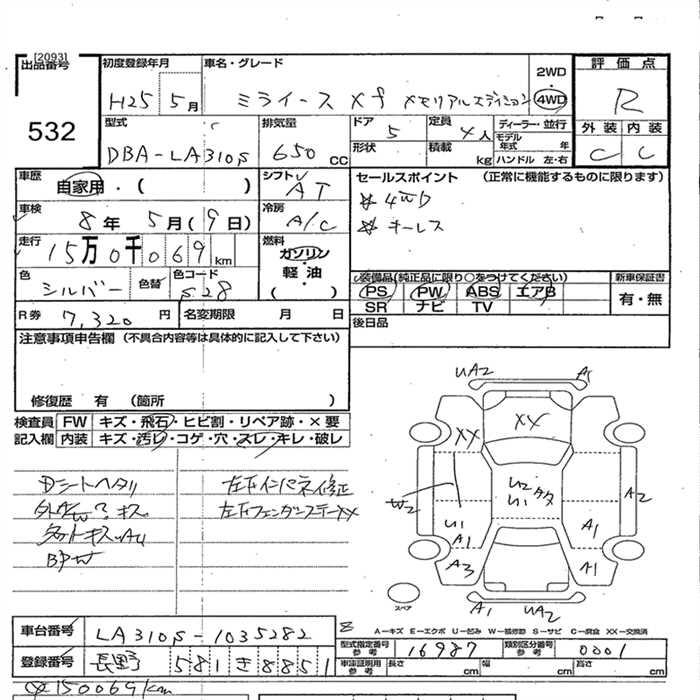 [2093]
出品番号
532
初度登録年月
H25 5月
車名・グレード
ミライース Xf メモリアルエディション
2WD
4WD
評価点
R
外装 内装
C C
型式
DBA-LA310S
排気量
650 CC
ドア 5
形状
定員 4人
積載 kg
ディーラー・並行
モデル年式 年
ハンドル 左・右
車歴
自家用・( )
シフト
AT
セールスポイント (正常に機能するものに限ります)
※4WD
※キーレス
車検
8年 5月(9日)
冷房
A/C
走行
15万0千069km
燃料
ガソリン
軽・油
( )
色
シルバー
色替
色コード
S28
装備品(純正品に限り○をつけてください)
PS PW ABS エアB
SR ナビ TV
新車保証書
有・無
R券 7,320円
名変期限 月 日
後日品
注意事項申告欄 (不具合内容等は具体的に記入して下さい)
修復歴 有 (箇所 )
検査員 FW キズ・飛石・ヒビ割・リペア跡・×要
記入欄 内装 キズ・汚レ・コゲ・穴・スレ・キレ・破レ
Dシートヘタリ
左右インパネ修正
キズ
左右フェンダーステーXX
UA2 A1
XX
XX
W2
U2
U1 タタ
A2
U1
A1
A1
A3
A1
A1 UA2
スペア
A-キズ E-エクボ U-凹み W-補修跡 S-サビ C-腐食 XX-交換済
車台番号 LA310S-1035282
登録番号 長野 581 き 8851
型式指定番号
参考
16987
類別区分番号
参考
0001
車庫証明用
参考
長さ cm
幅 cm
高さ cm
150069km